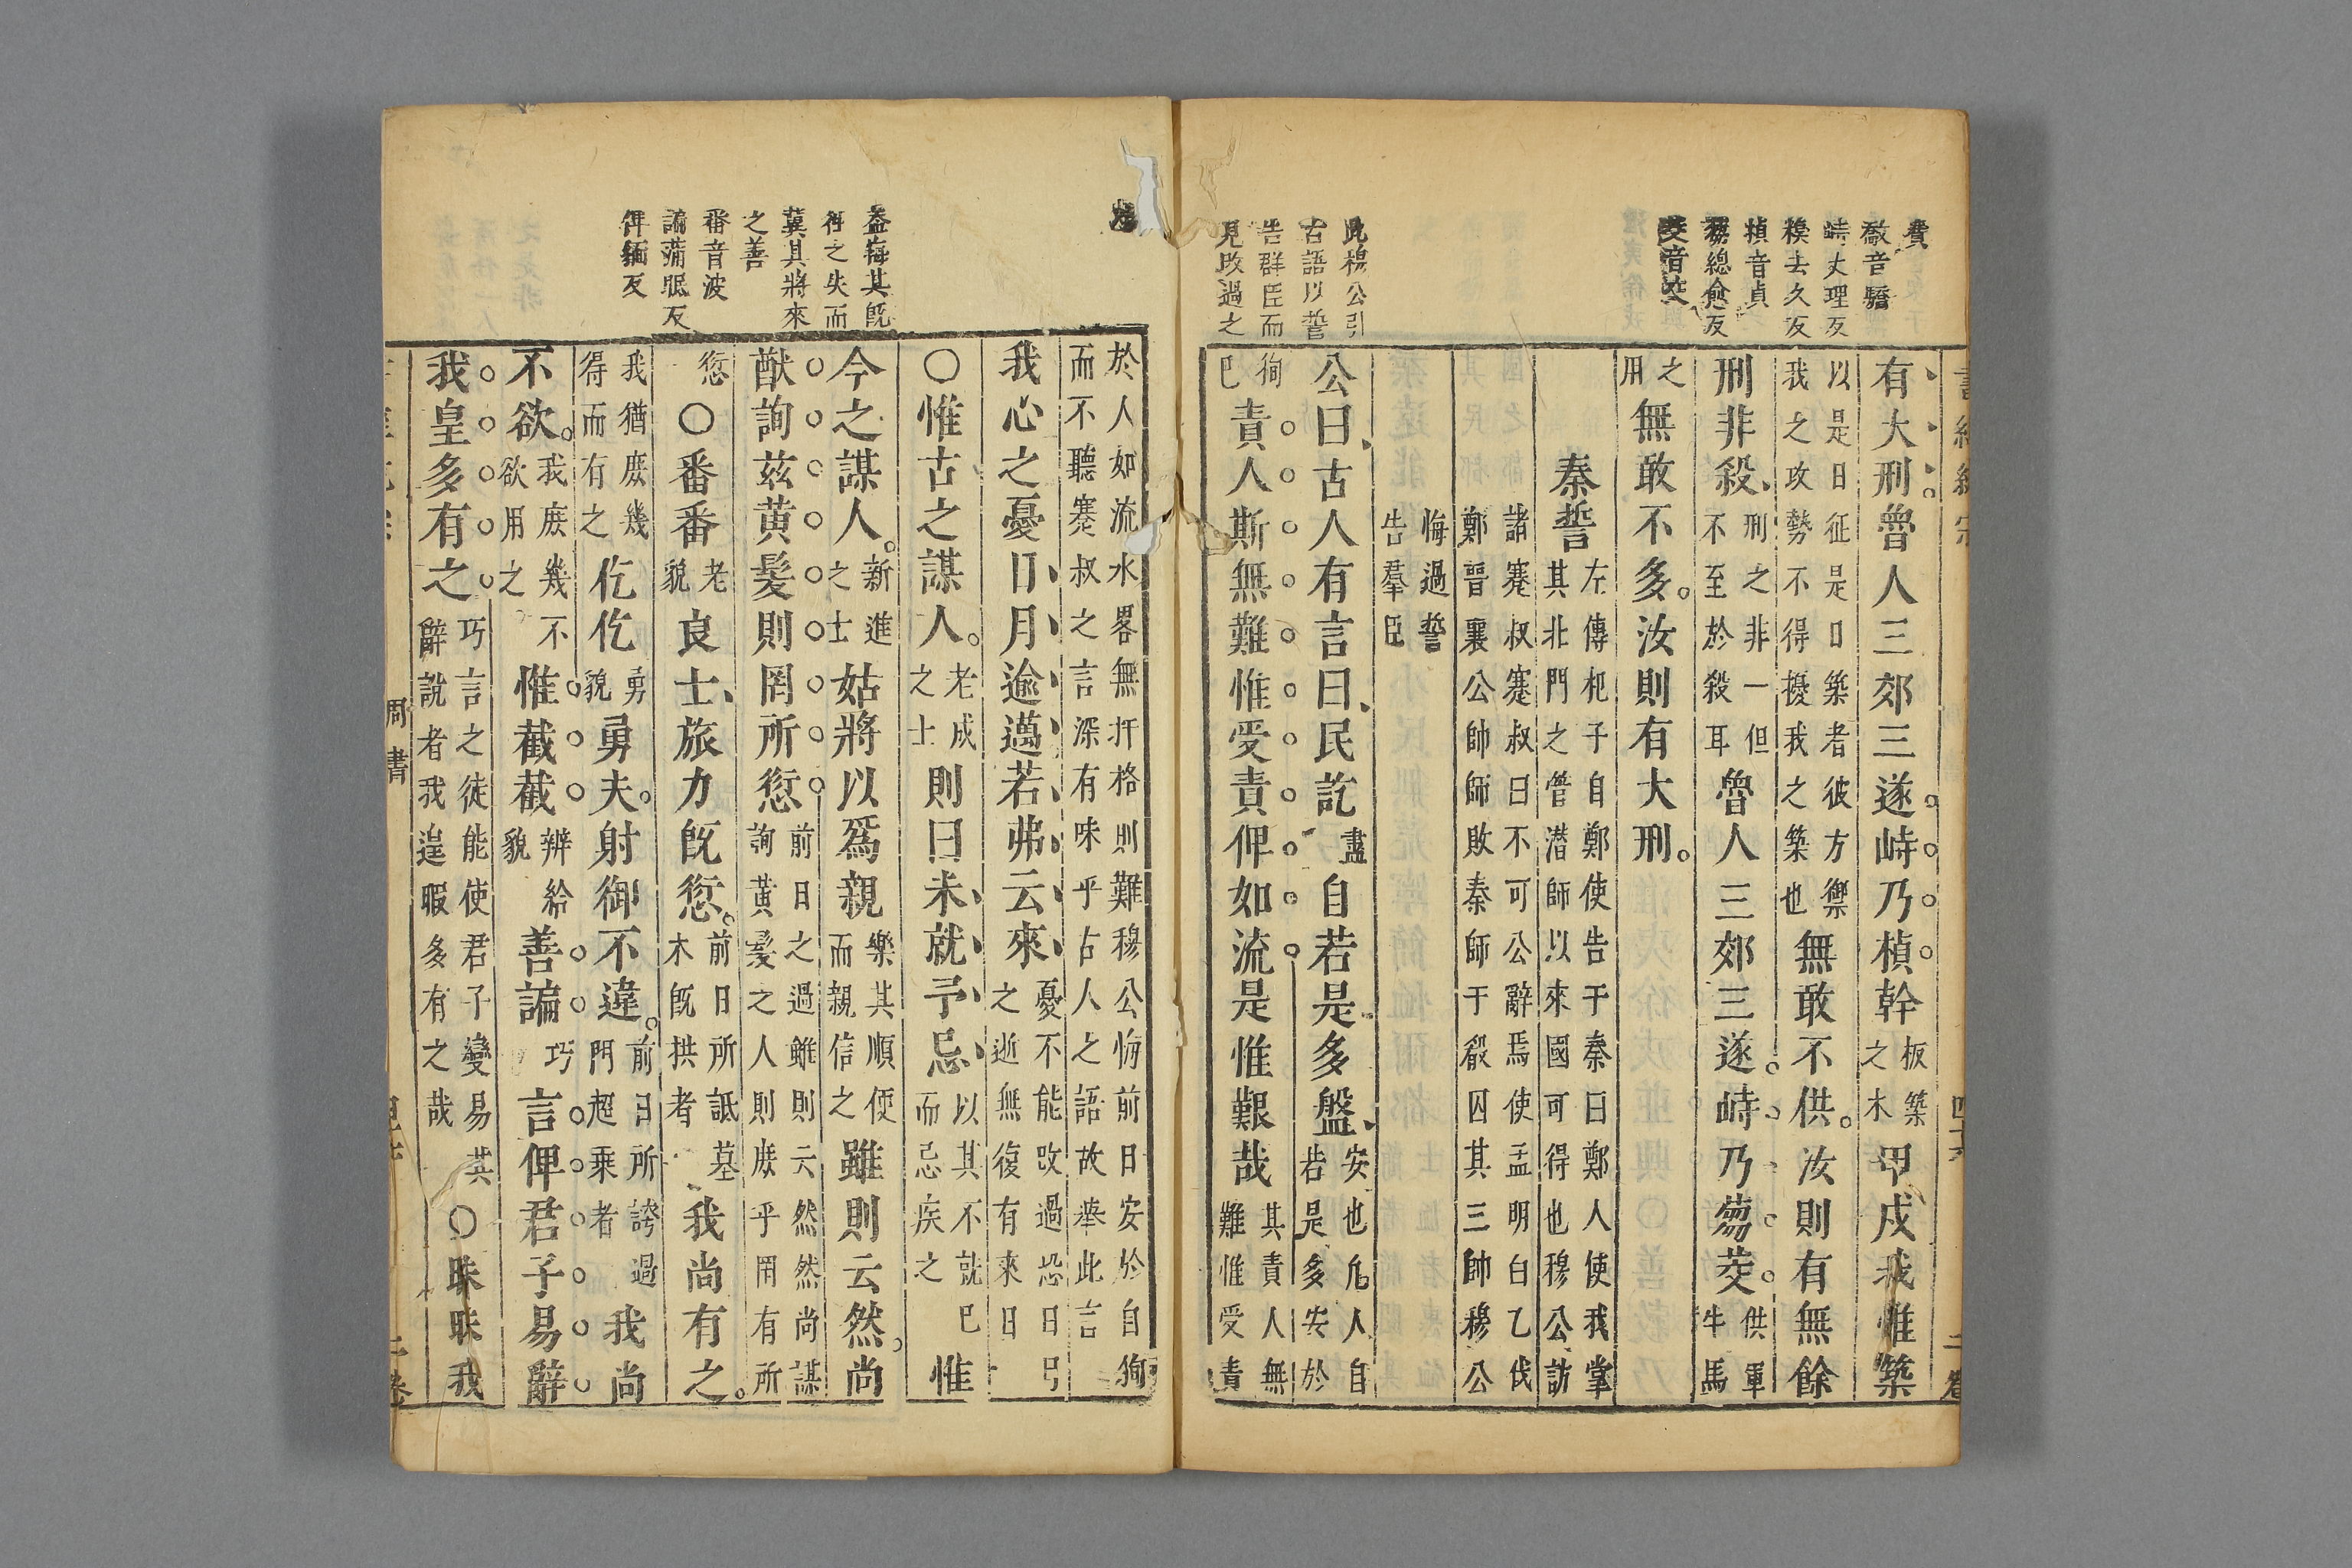 費
敿音驕
峙丈理反
糗去久反
楨音貞
芻總俞反
茭音交
有大刑魯人三郊三遂峙乃楨幹板築之木甲戌我惟築
以是日征是日築者彼方禦
我之攻勢不得擾我之築也
無敢不供汝則有無餘
刑非殺刑之非一但不至於殺耳魯人三郊三遂峙乃芻茭供軍牛馬
之用無敢不多汝則有大刑
秦誓左傳杞子自鄭使告于秦曰鄭人使我掌
其北門之管潛師以來國可得也穆公訪
諸蹇叔蹇叔曰不可公辭焉使孟明白乙伐
鄭晉襄公帥師敗秦師于殽囚其三帥穆公
悔過誓
告羣臣
此穆公引
古語以誓
告群臣而
見改過之
公曰古人有言曰民訖盡自若是多盤安也凡人自若是多安於
徇己責人斯無難惟受責俾如流是惟艱哉其責人無難惟受責
於人如流水畧無扞格則難穆公悔前日安於自徇
而不聽蹇叔之言深有味乎古人之語故舉此言
我心之憂日月逾邁若弗云來憂不能改過恐日月之逝無復有來日
○惟古之謀人老成之士則曰未就予忌以其不就己而忌疾之惟
益悔其旣
往之失而
冀其將來
之善
番音波
諞蒲眠反
俾緬反
今之謀人新進之士姑將以爲親樂其順便而親信之雖則云然尚
猷詢茲黃髮則罔所愆前日之過雖則云然然尚謀詢黃髮之人則庶乎罔有所
愆○番番老貌良士旅力旣愆前日所詆墓木旣拱者我尚有之
我猶庶幾得而有之仡仡勇貌勇夫射御不違前日所誇過門超乘者我尚
不欲我庶幾不欲用之惟截截辨給貌善諞巧言俾君子易辭
我皇多有之巧言之徒能使君子變易其辭說者我遑暇多有之哉○昧昧我
周書